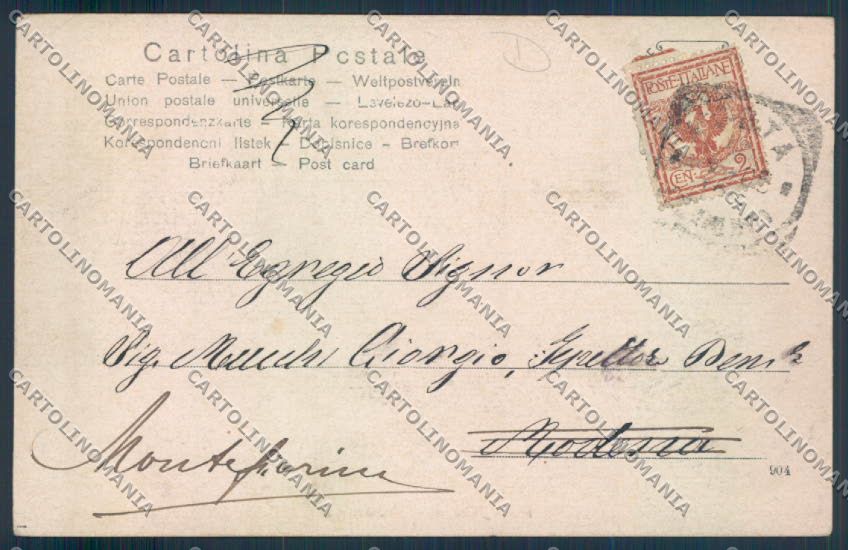 Cartolina Postale
Carte Postale – Postkarte – Weltpostverein
Union postale universelle – Levelezö-Lap
Correspondenzkarte – Karta korespondencyjna
Korespondencni listek – Dopisnice – Brefkort
Briefkaart – Post card
POSTE·ITALIANE
CEN. 2
All'Egregio Signor
Sig. Giorgio,
Modena
Montefiorino
904
CARTOLINOMANIA